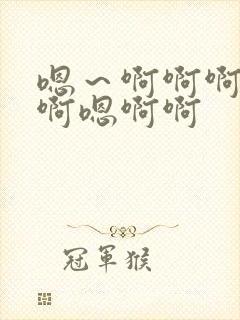 嗯～啊啊啊
啊嗯啊啊
冠軍猴